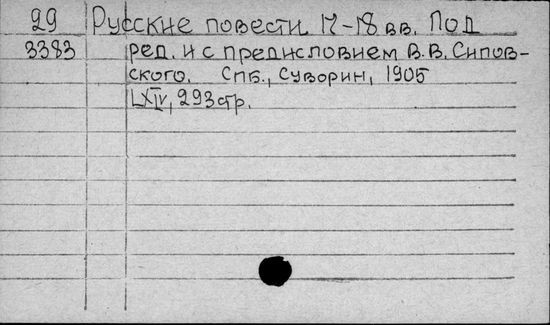 29 Русские повести 17-18 вв. Под
3383 ред. и с предисловием В.В. Сипов-
ского. Спб., Суворин, 1905
LXIV, 293 стр.